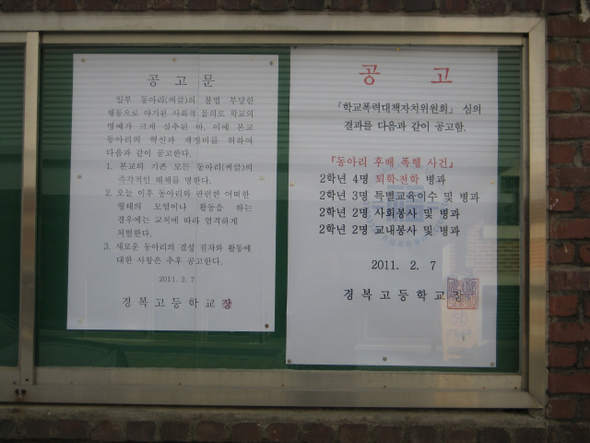 공고문
일부 동아리(써클)의 불법 부당한
행동으로 야기된 사회적 물의로 학교의
명예가 크게 실추된 바, 이에 본교
동아리의 혁신과 재정비를 위하여
다음과 같이 공고한다.
1. 본교의 기존 모든 동아리(써클)의
즉각적인 해체를 명한다.
2. 오늘 이후 동아리와 관련한 어떠한
형태의 모임이나 활동을 하는
경우에는 교칙에 따라 엄격하게
처벌한다.
3. 새로운 동아리의 결성 절차와 활동에
대한 사항은 추후 공고한다.
2011. 2. 7
경복고등학교장
공 고
「학교폭력대책자치위원회」 심의
결과를 다음과 같이 공고함.
『동아리 후배 폭행 사건』
2학년 4명 퇴학·전학 병과
2학년 3명 특별교육이수 및 병과
2학년 2명 사회봉사 및 병과
2학년 2명 교내봉사 및 병과
2011. 2. 7
경복고등학교장